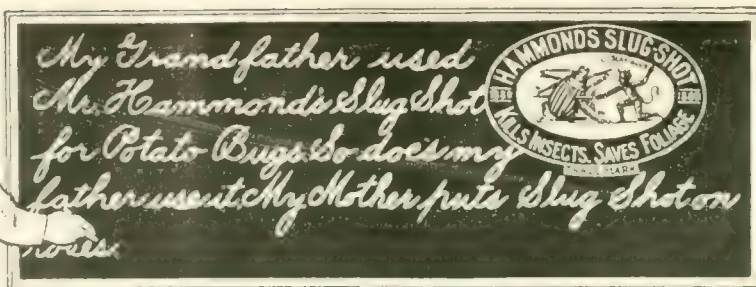 My Grandfather used
Mr. Hammond's Slug Shot
for Potato Bugs. So does my
father use it My Mother puts Slug Shot on
roses.
HAMMOND'S SLUG-SHOT
KILLS INSECTS. SAVES FOLIAGE
TRADE MARK